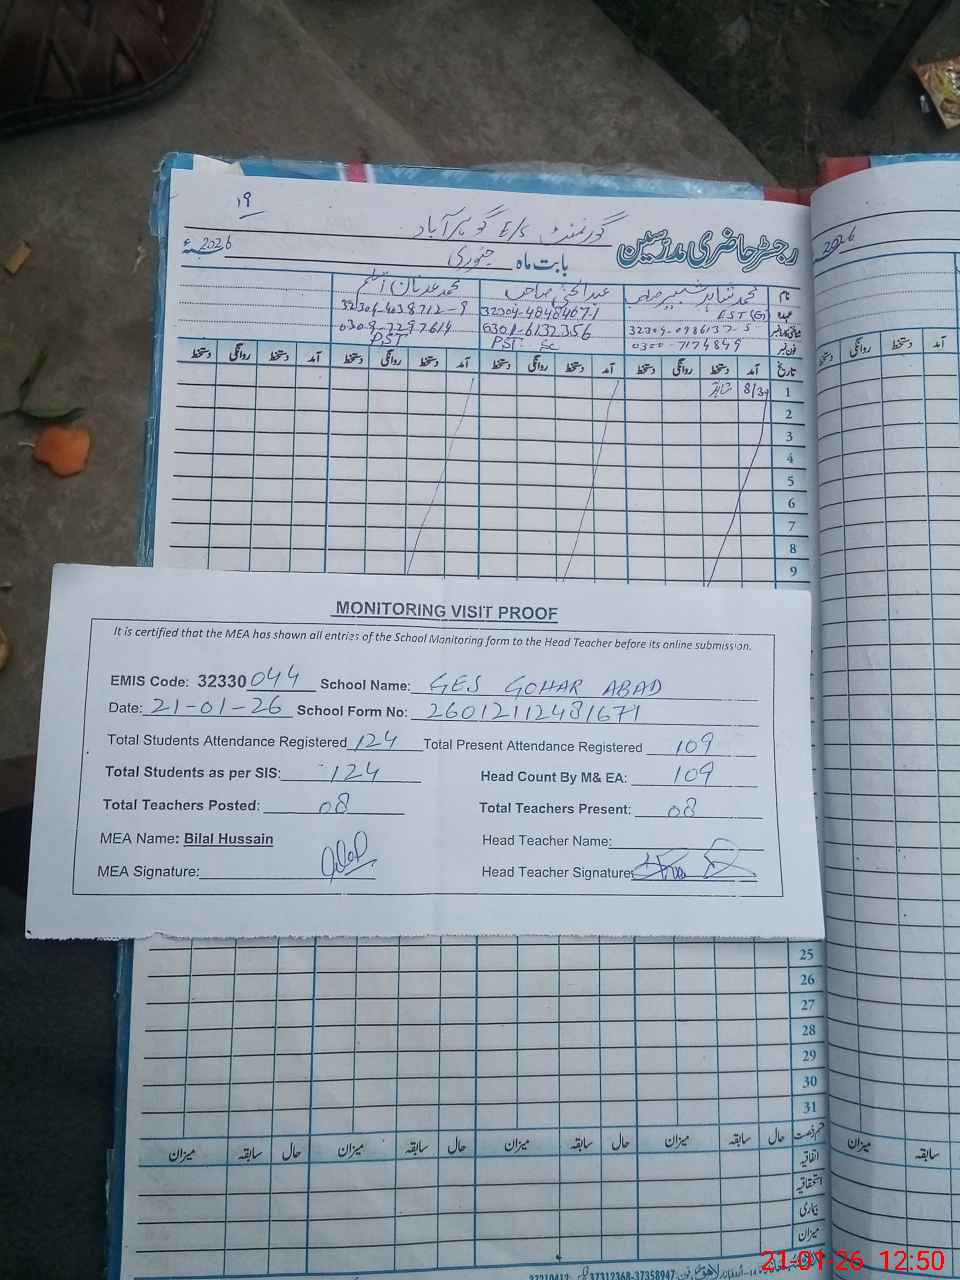 ١٩
گورنمنٹ E/S گوہر آباد
رجسٹر حاضری مدرسین
بابت ماہ جنوری 2026ء
2026
نام محمد شاہد شبیر صاحب عبدالحئی صاحب محمد عدنان اسلم
عہدہ EST(G)
شناختی کارڈ نمبر 32304-0986137-5 32304-4848407-1 32304-4038712-9
فون نمبر 0300-7174849 0301-6132356 0309-7297614
PST Sc PST
تاریخ آمد دستخط روانگی دستخط آمد دستخط روانگی دستخط آمد دستخط روانگی دستخط آمد دستخط روانگی دستخط
آمد دستخط روانگی دستخط
1 8/30 شاہد
2
3
4
5
6
7
8
9
MONITORING VISIT PROOF
It is certified that the MEA has shown all entries of the School Monitoring form to the Head Teacher before its online submission.
EMIS Code: 32330044 School Name: GES GOHAR ABAD
Date: 21-01-26 School Form No: 26012112481671
Total Students Attendance Registered 124 Total Present Attendance Registered 109
Total Students as per SIS: 124 Head Count By M& EA: 109
Total Teachers Posted: 08 Total Teachers Present: 08
MEA Name: Bilal Hussain Head Teacher Name:
MEA Signature: Head Teacher Signature:
25
26
27
28
29
30
31
قسم رخصت حال سابقہ میزان حال سابقہ میزان حال سابقہ میزان حال سابقہ میزان
میزان سابقہ
اتفاقیہ
استحقاقیہ
بیماری
میزان
37312368-37358947
21-01-26 12:50